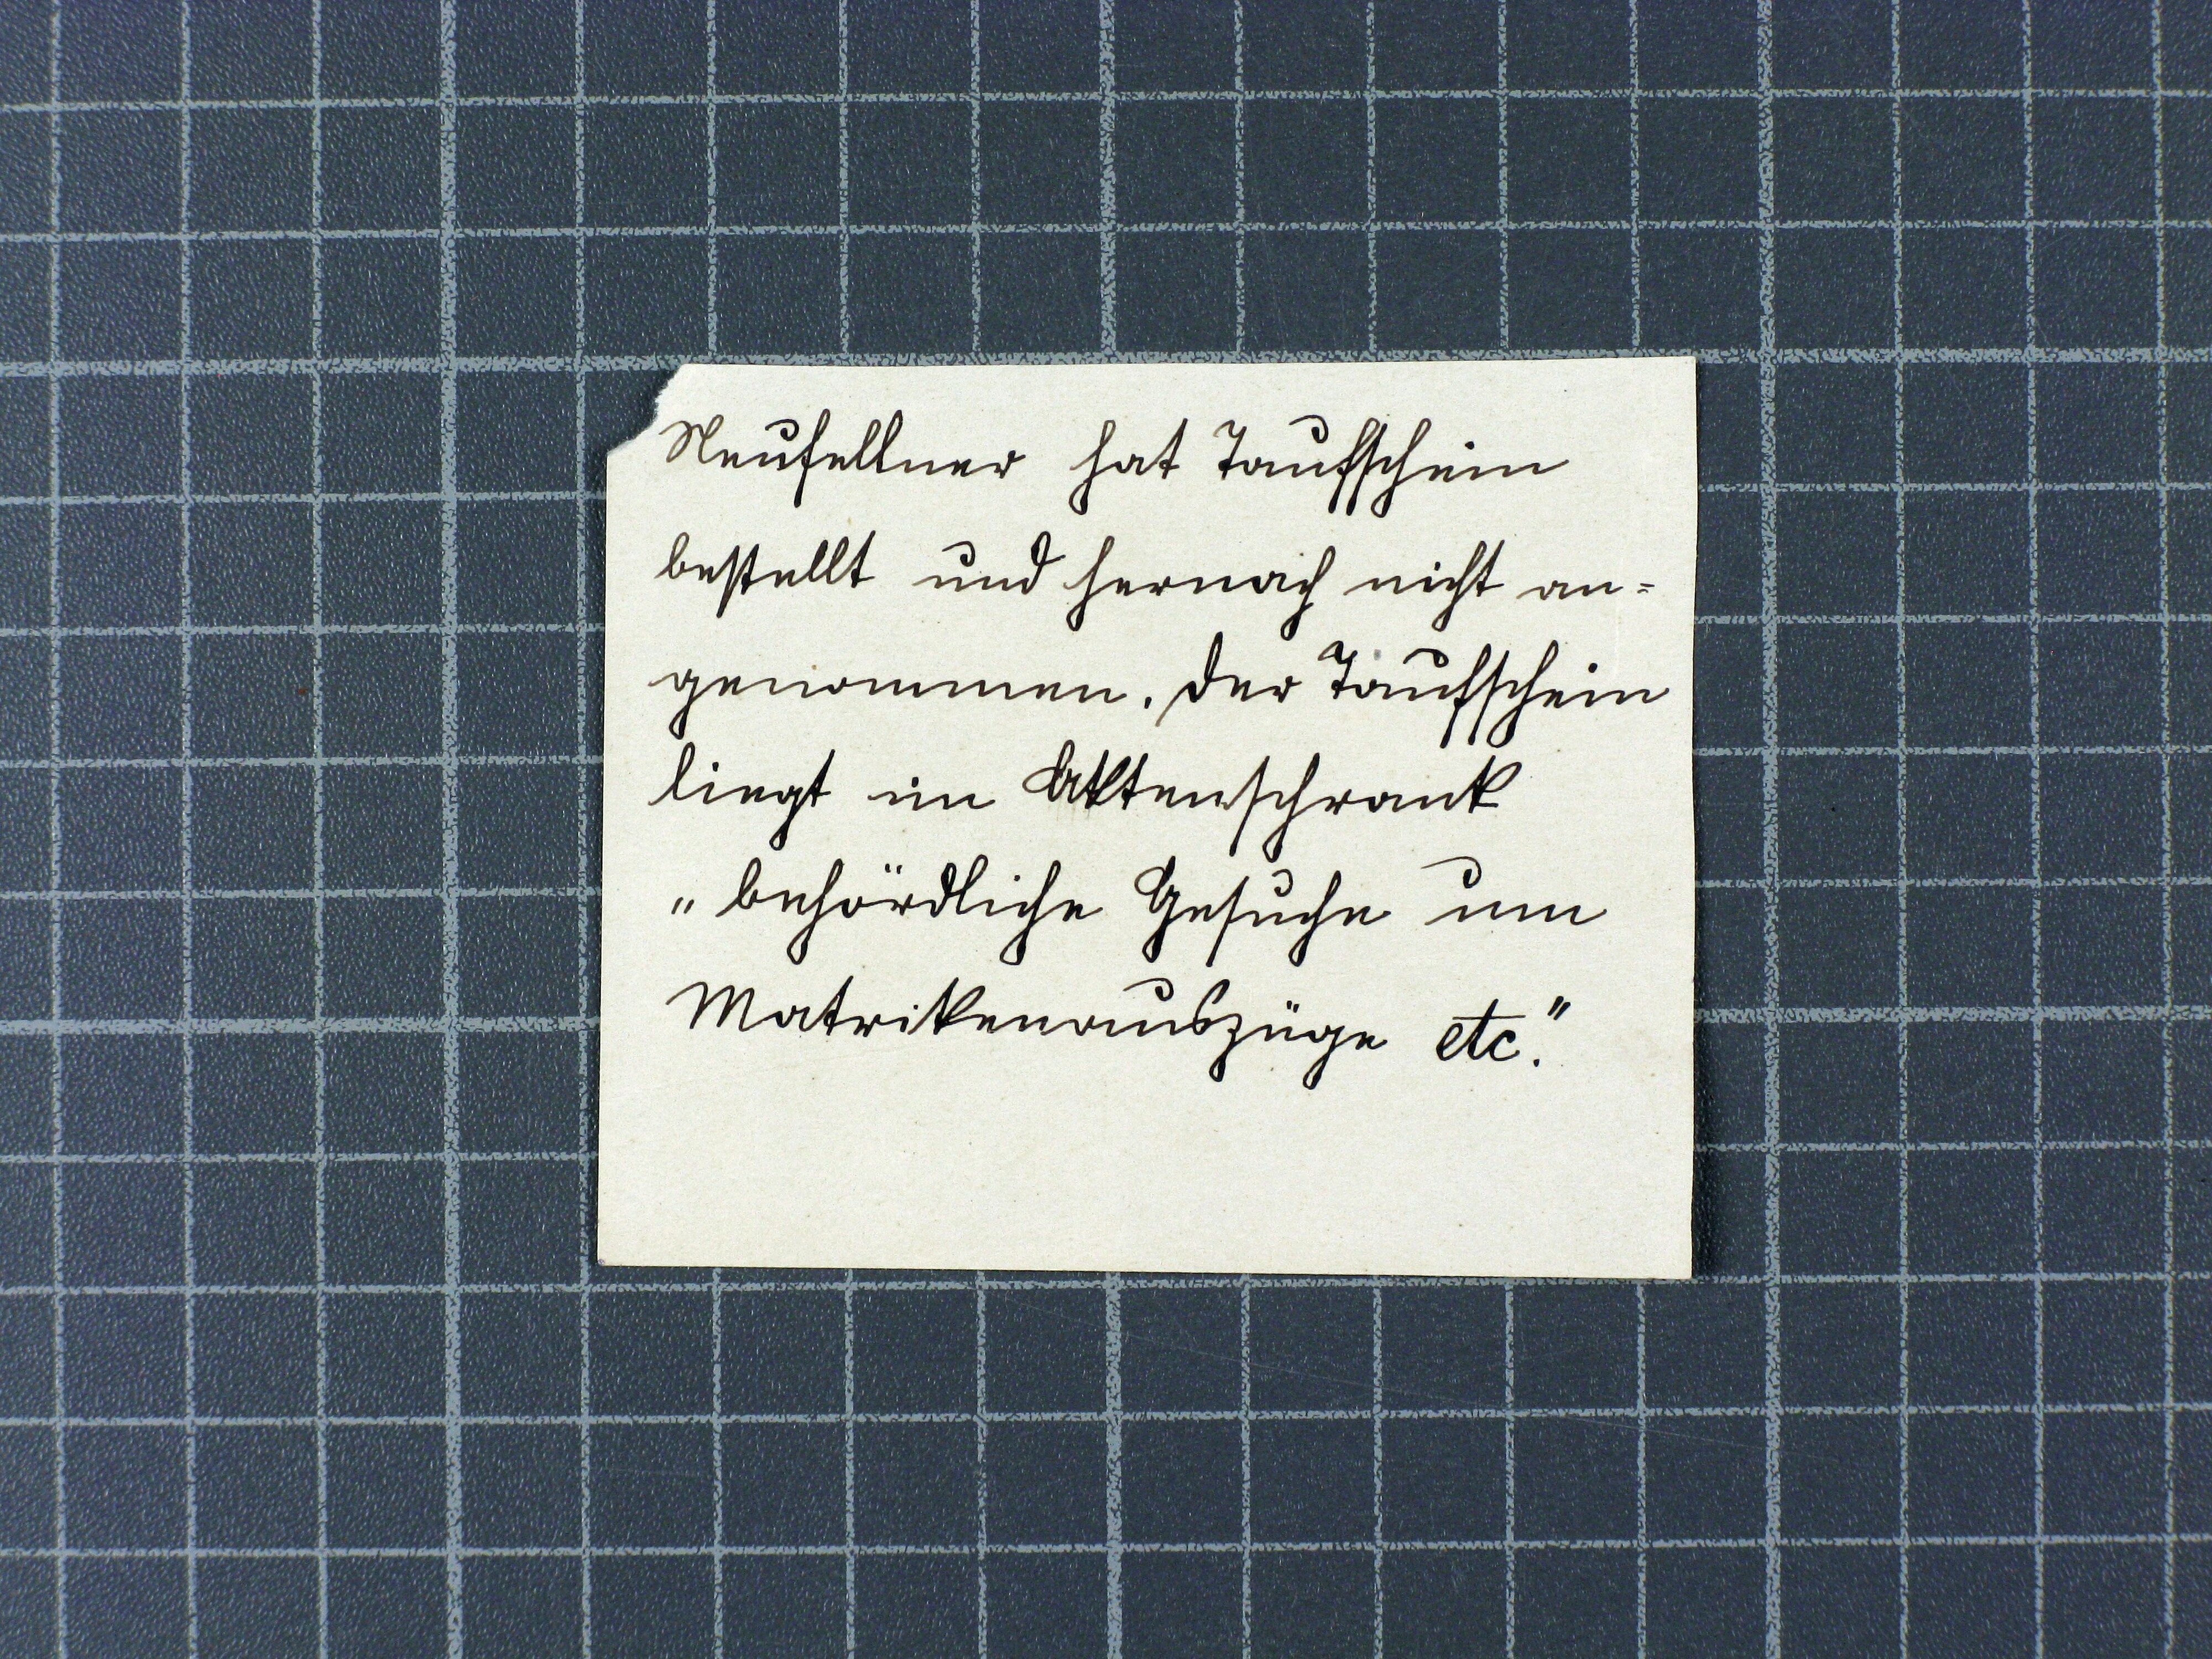 Neufellner hat Taufschein
bestellt und hernach nicht an=
genommen. Der Taufschein
liegt im Aktenschrank
„behördliche Gesuche um
Matrikenauszüge etc."